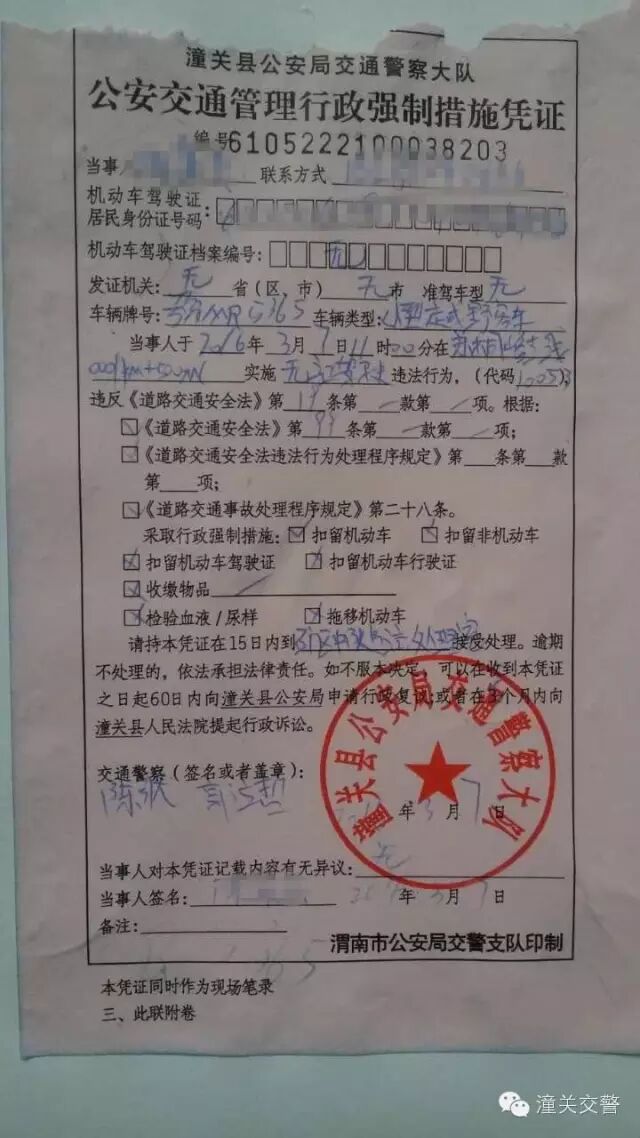 潼关县公安局交通警察大队
公安交通管理行政强制措施凭证
编号6105222100038203
当事 联系方式
机动车驾驶证
居民身份证号码:
机动车驾驶证档案编号: 无
发证机关: 无 省(区、市) 无 市 准驾车型 无
车辆牌号: 车辆类型:
当事人于2016年3月7日11时00分在
实施 无证驾驶 违法行为,(代码1005)
违反《道路交通安全法》第19条第一款第 项。根据:
《道路交通安全法》第99条第一款第 项;
《道路交通安全法违法行为处理程序规定》第 条第 款
第 项;
《道路交通事故处理程序规定》第二十八条。
采取行政强制措施: 扣留机动车 扣留非机动车
扣留机动车驾驶证 扣留机动车行驶证
收缴物品
检验血液/尿样 拖移机动车
请持本凭证在15日内到 接受处理。逾期
不处理的,依法承担法律责任。如不服本决定,可以在收到本凭证
之日起60日内向潼关县公安局申请行政复议;或者在3个月内向
潼关县人民法院提起行政诉讼。
潼关县公安局交通警察大队
交通警察(签名或者盖章):
年3月7日
当事人对本凭证记载内容有无异议: 无
当事人签名: 年3月7日
备注:
渭南市公安局交警支队印制
本凭证同时作为现场笔录
三、此联附卷
潼关交警